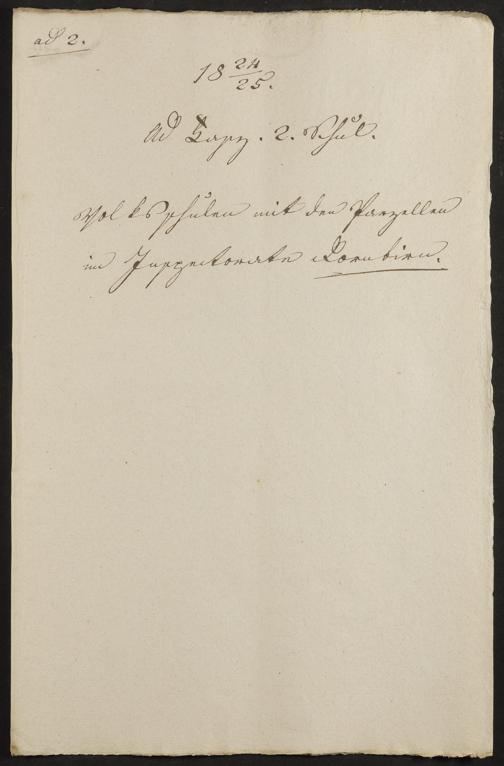 ad 2.
18 24/25.
Ad Fasz. 2. Schul.
Volksschulen mit den Parzellen
im Inspektorate Dornbirn.